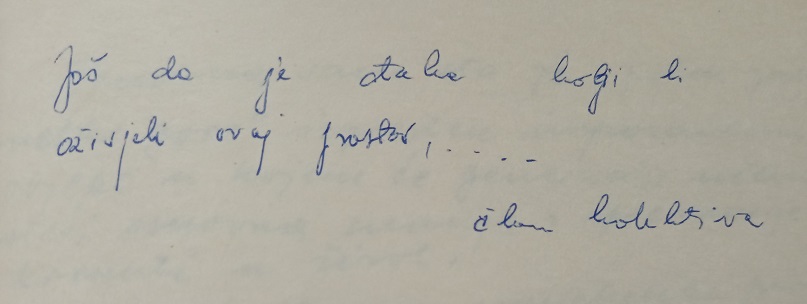 Još da je đaka koji bi
oživjeli ovaj prostor, . . . .
član kolektiva